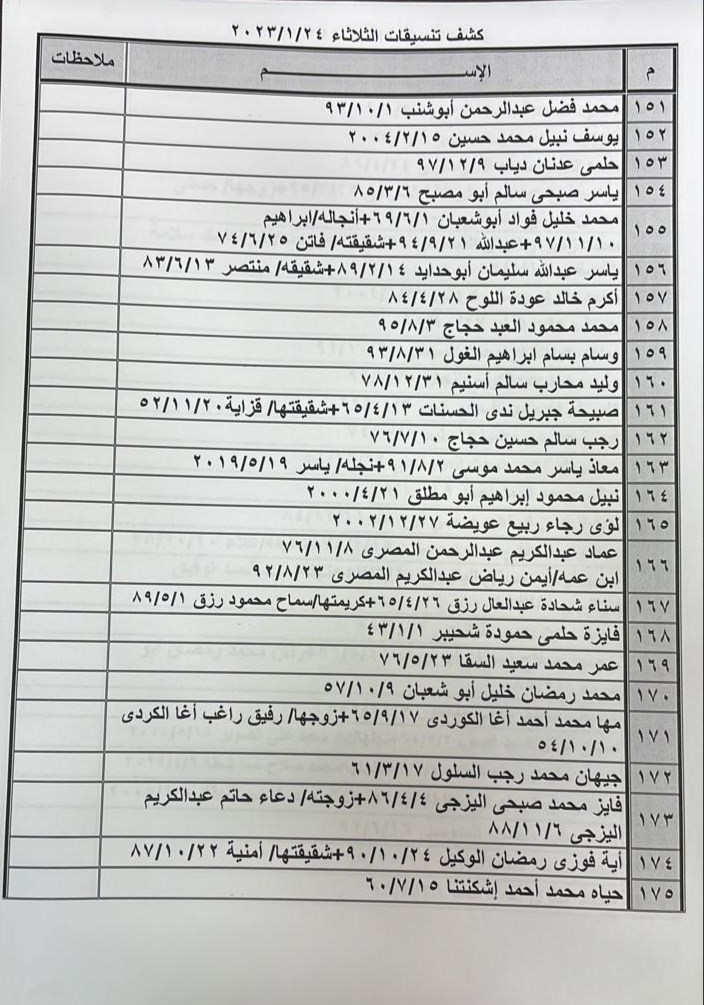 كشف تنسيقات الثلاثاء ٢٠٢٣/١/٢٤
م الإســـــــم ملاحظات
١٥١ محمد فضل عبدالرحمن أبوشنب ٩٣/١٠/١
١٥٢ يوسف نبيل محمد حسين ٢٠٠٤/٢/١٥
١٥٣ حلمى عدنان دياب ٩٧/١٢/٩
١٥٤ ياسر صبحى سالم أبو مصبح ٨٥/٣/٦
١٥٥ محمد خليل فواد أبوشعبان ٦٩/٦/١+أنجاله/ابراهيم
٩٧/١١/١٠+عبدالله ٩٤/٩/٢١+شقيقته/ فاتن ٧٤/٦/٢٥
١٥٦ ياسر عبدالله سليمان أبوحدايد ٨٩/٢/١٤+شقيقه/ منتصر ٨٣/٦/١٣
١٥٧ أكرم خالد عودة اللوح ٨٤/٤/٢٨
١٥٨ محمد محمود العبد حجاج ٩٥/٨/٣
١٥٩ وسام بسام ابراهيم الغول ٩٣/٨/٣١
١٦٠ وليد محارب سالم أسنيم ٧٨/١٢/٣١
١٦١ صبيحة جبريل ندى الحسنات ٦٥/٤/١٣+شقيقتها/ قزاية٥٢/١١/٢٠
١٦٢ رجب سالم حسين حجاج ٧٦/٧/١٠
١٦٣ معاذ ياسر محمد موسى ٩١/٨/٢+نجله/ ياسر ٢٠١٩/٥/١٩
١٦٤ نبيل محمود إبراهيم أبو مطلق ٢٠٠٠/٤/٢١
١٦٥ لؤى رجاء ربيع عويضة ٢٠٠٢/١٢/٢٧
١٦٦ عماد عبدالكريم عبدالرحمن المصرى ٧٦/١١/٨
ابن عمه/أيمن رياض عبدالكريم المصرى ٩٢/٨/٢٣
١٦٧ سناء شحادة عبدالعال رزق ٦٥/٤/٢٦+كريمتها/سماح محمود رزق ٨٩/٥/١
١٦٨ فايزة حلمى حمودة شحيبر ٤٣/١/١
١٦٩ عمر محمد سعيد السقا ٧٦/٥/٢٣
١٧٠ محمد رمضان خليل أبو شعبان ٥٧/١٠/٩
١٧١ مها محمد أحمد أغا الكوردى ٦٥/٩/١٧+زوجها/ رفيق راغب أغا الكردى
٥٤/١٠/١٠
١٧٢ جيهان محمد رجب السلول ٦١/٣/١٧
١٧٣ فايز محمد صبحى اليزجى ٨٦/٤/٤+زوجته/ دعاء حاتم عبدالكريم
اليزجى ٨٨/١١/٦
١٧٤ أية فوزى رمضان الوكيل ٩٠/١٠/٢٤+شقيقتها/ أمنية ٨٧/١٠/٢٢
١٧٥ حياه محمد أحمد إشكنتنا ٦٠/٧/١٥